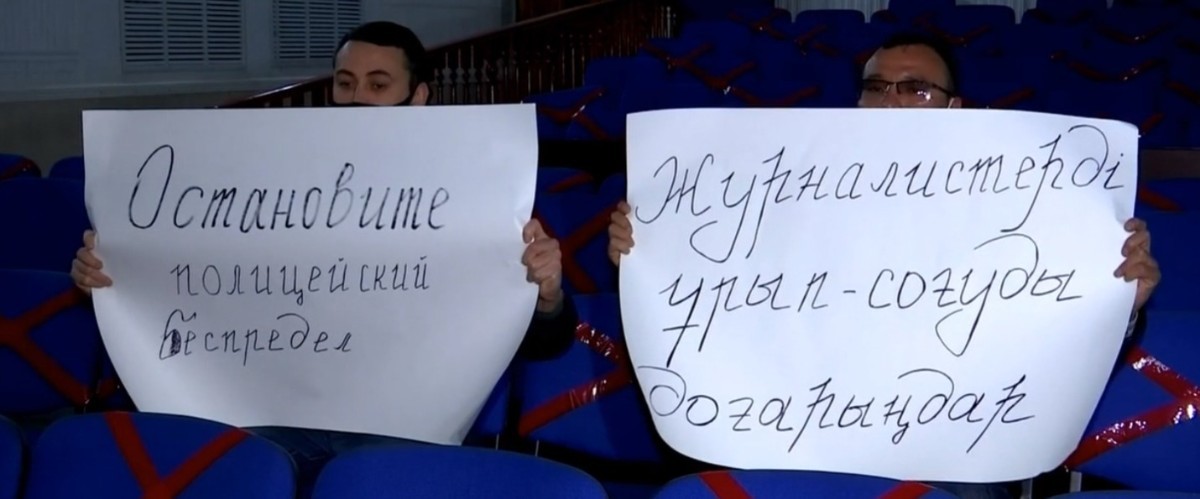 Остановите
полицейский
беспредел
Журналистерді
ұрып-соғуды
доғарыңдар